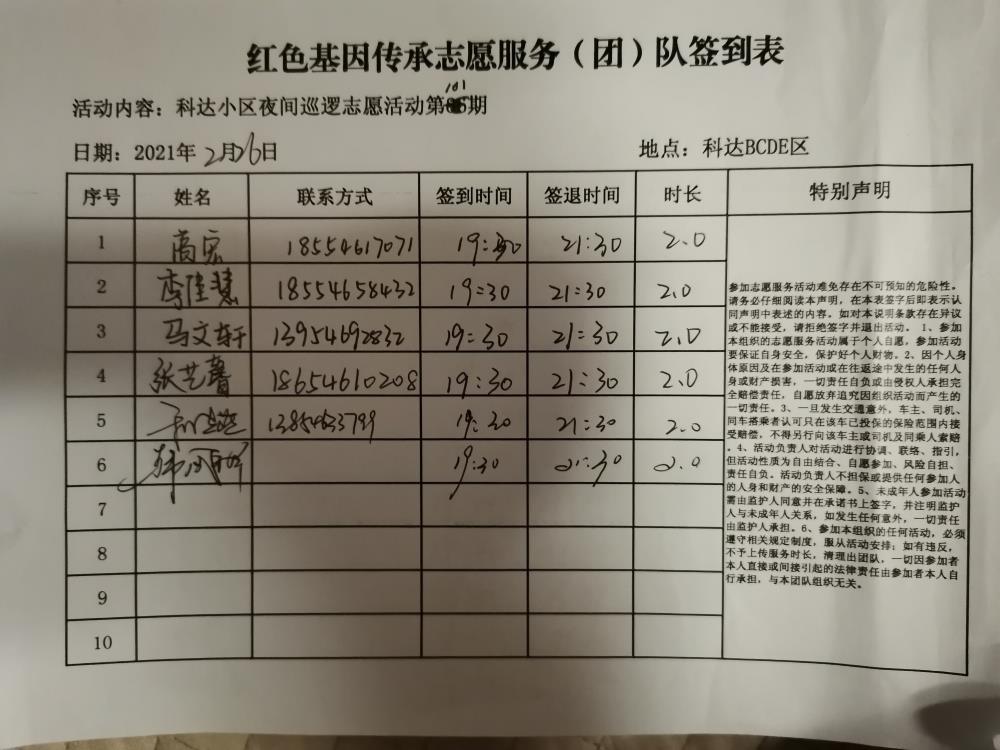 红色基因传承志愿服务（团）队签到表
101
活动内容：科达小区夜间巡逻志愿活动第期
日期：2021年2月26日
地点：科达BCDE区
序号 姓名 联系方式 签到时间 签退时间 时长 特别声明
1 高宏 18554617071 19:30 21:30 2.0
2 李佳慧 18554658432 19:30 21:30 2.0
3 马文轩 13954692832 19:30 21:30 2.0
4 张艺馨 18654610208 19:30 21:30 2.0
5 19:30 21:30 2.0
6 19:30 21:30 2.0
7
8
9
10
参加志愿服务活动难免存在不可预知的危险性。
请务必仔细阅读本声明，在本表签字后即表示认
同声明中表述的内容。如对本说明条款存在异议
或不能接受，请拒绝签字并退出活动。 1、参加
本组织的志愿服务活动属于个人自愿，参加活动
要保证自身安全，保护好个人财物。2、因个人身
体原因及在参加活动或在往返途中发生的任何人
身或财产损害，一切责任自负或由侵权人承担完
全赔偿责任，自愿放弃追究因组织活动而产生的
一切责任。3、一旦发生交通意外，车主、司机、
同车搭乘者认可只在该车已投保的保险范围内接
受赔偿，不得另行向该车主或司机及同乘人索赔
。4、活动负责人对活动进行协调、联络、指引，
但活动性质为自由结合、自愿参加、风险自担、
责任自负。活动负责人不担保或提供任何参加人
的人身和财产的安全保障。5、未成年人参加活动
需由监护人同意并在承诺书上签字，并注明监护
人与未成年人关系，如发生任何意外，一切责任
由监护人承担。6、参加本组织的任何活动，必须
遵守相关规定制度，服从活动安排；如有违反，
不予上传服务时长，清理出团队，一切因参加者
本人直接或间接引起的法律责任由参加者本人自
行承担，与本团队组织无关。